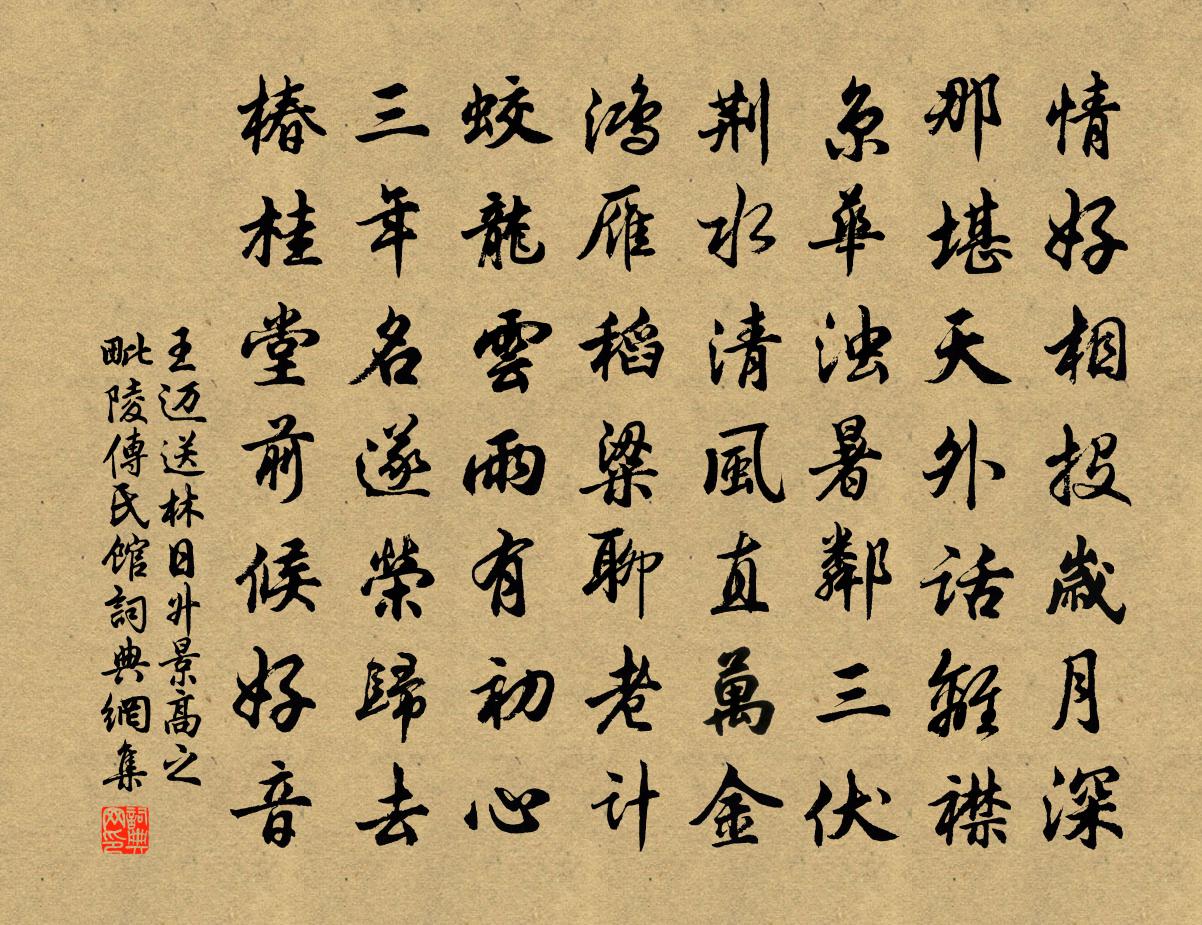 情好相投歲月深
那堪天外話離襟
京華浊暑鄰三伏
荆水清風直萬金
鸿雁稻粱聊老计
蛟龍雲雨有初心
三年名遂榮歸去
椿桂堂前候好音
王迈送林日升景高之
毗陵傳氏館詞典網集
詞典网印